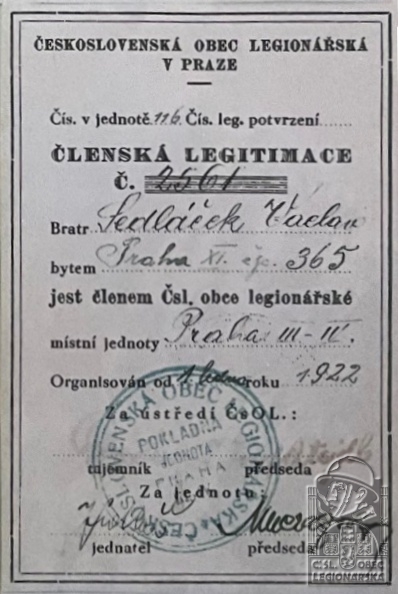 ČESKOSLOVENSKÁ OBEC LEGIONÁŘSKÁ
V PRAZE
Čís. v jednotě 116. Čís. leg. potvrzení
ČLENSKÁ LEGITIMACE
Č. 2561
Bratr Sedláček Václav
bytem Praha XI. čp. 365
jest členem Čsl. obce legionářské
místní jednoty Praha III-IV.
Organisován od 1. roku 1922
Za ústředí ČsOL.:
tajemník předseda
Za jednotu:
jednatel předseda
ČESKOSLOVENSKÁ OBEC LEGIONÁŘSKÁ
POKLADNA
JEDNOTA
PRAHA
ČSL. OBEC
LEGIONÁŘSKÁ